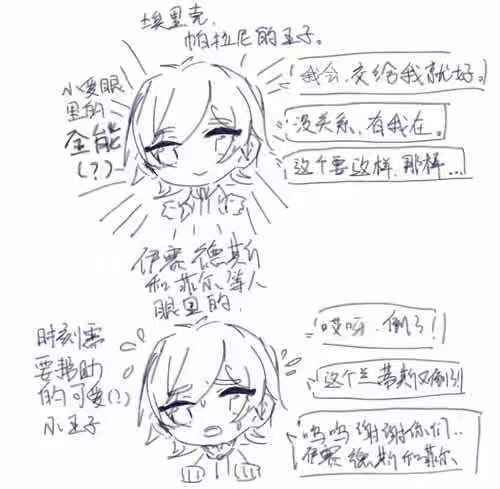 埃里克,
帕拉尼的王子。
小爱眼
里的
全能
(?)
我会,交给我就好。
没关系,有我在。
这个要这样,那样...
伊赛德斯
和菲尔等人
眼里的,
时刻需
要帮助
的可爱(?)
小王子
哎呀,倒了!
这个兰蒂斯又倒了
呜呜谢谢你们..
伊赛德斯和菲尔